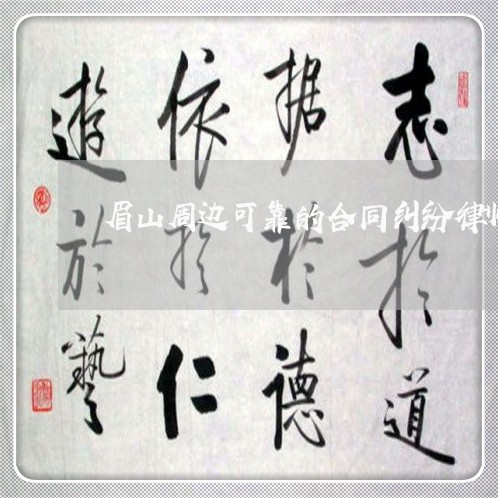 志扵道
据於德
依扵仁
遊於藝
眉山周边可靠的合同纠纷律